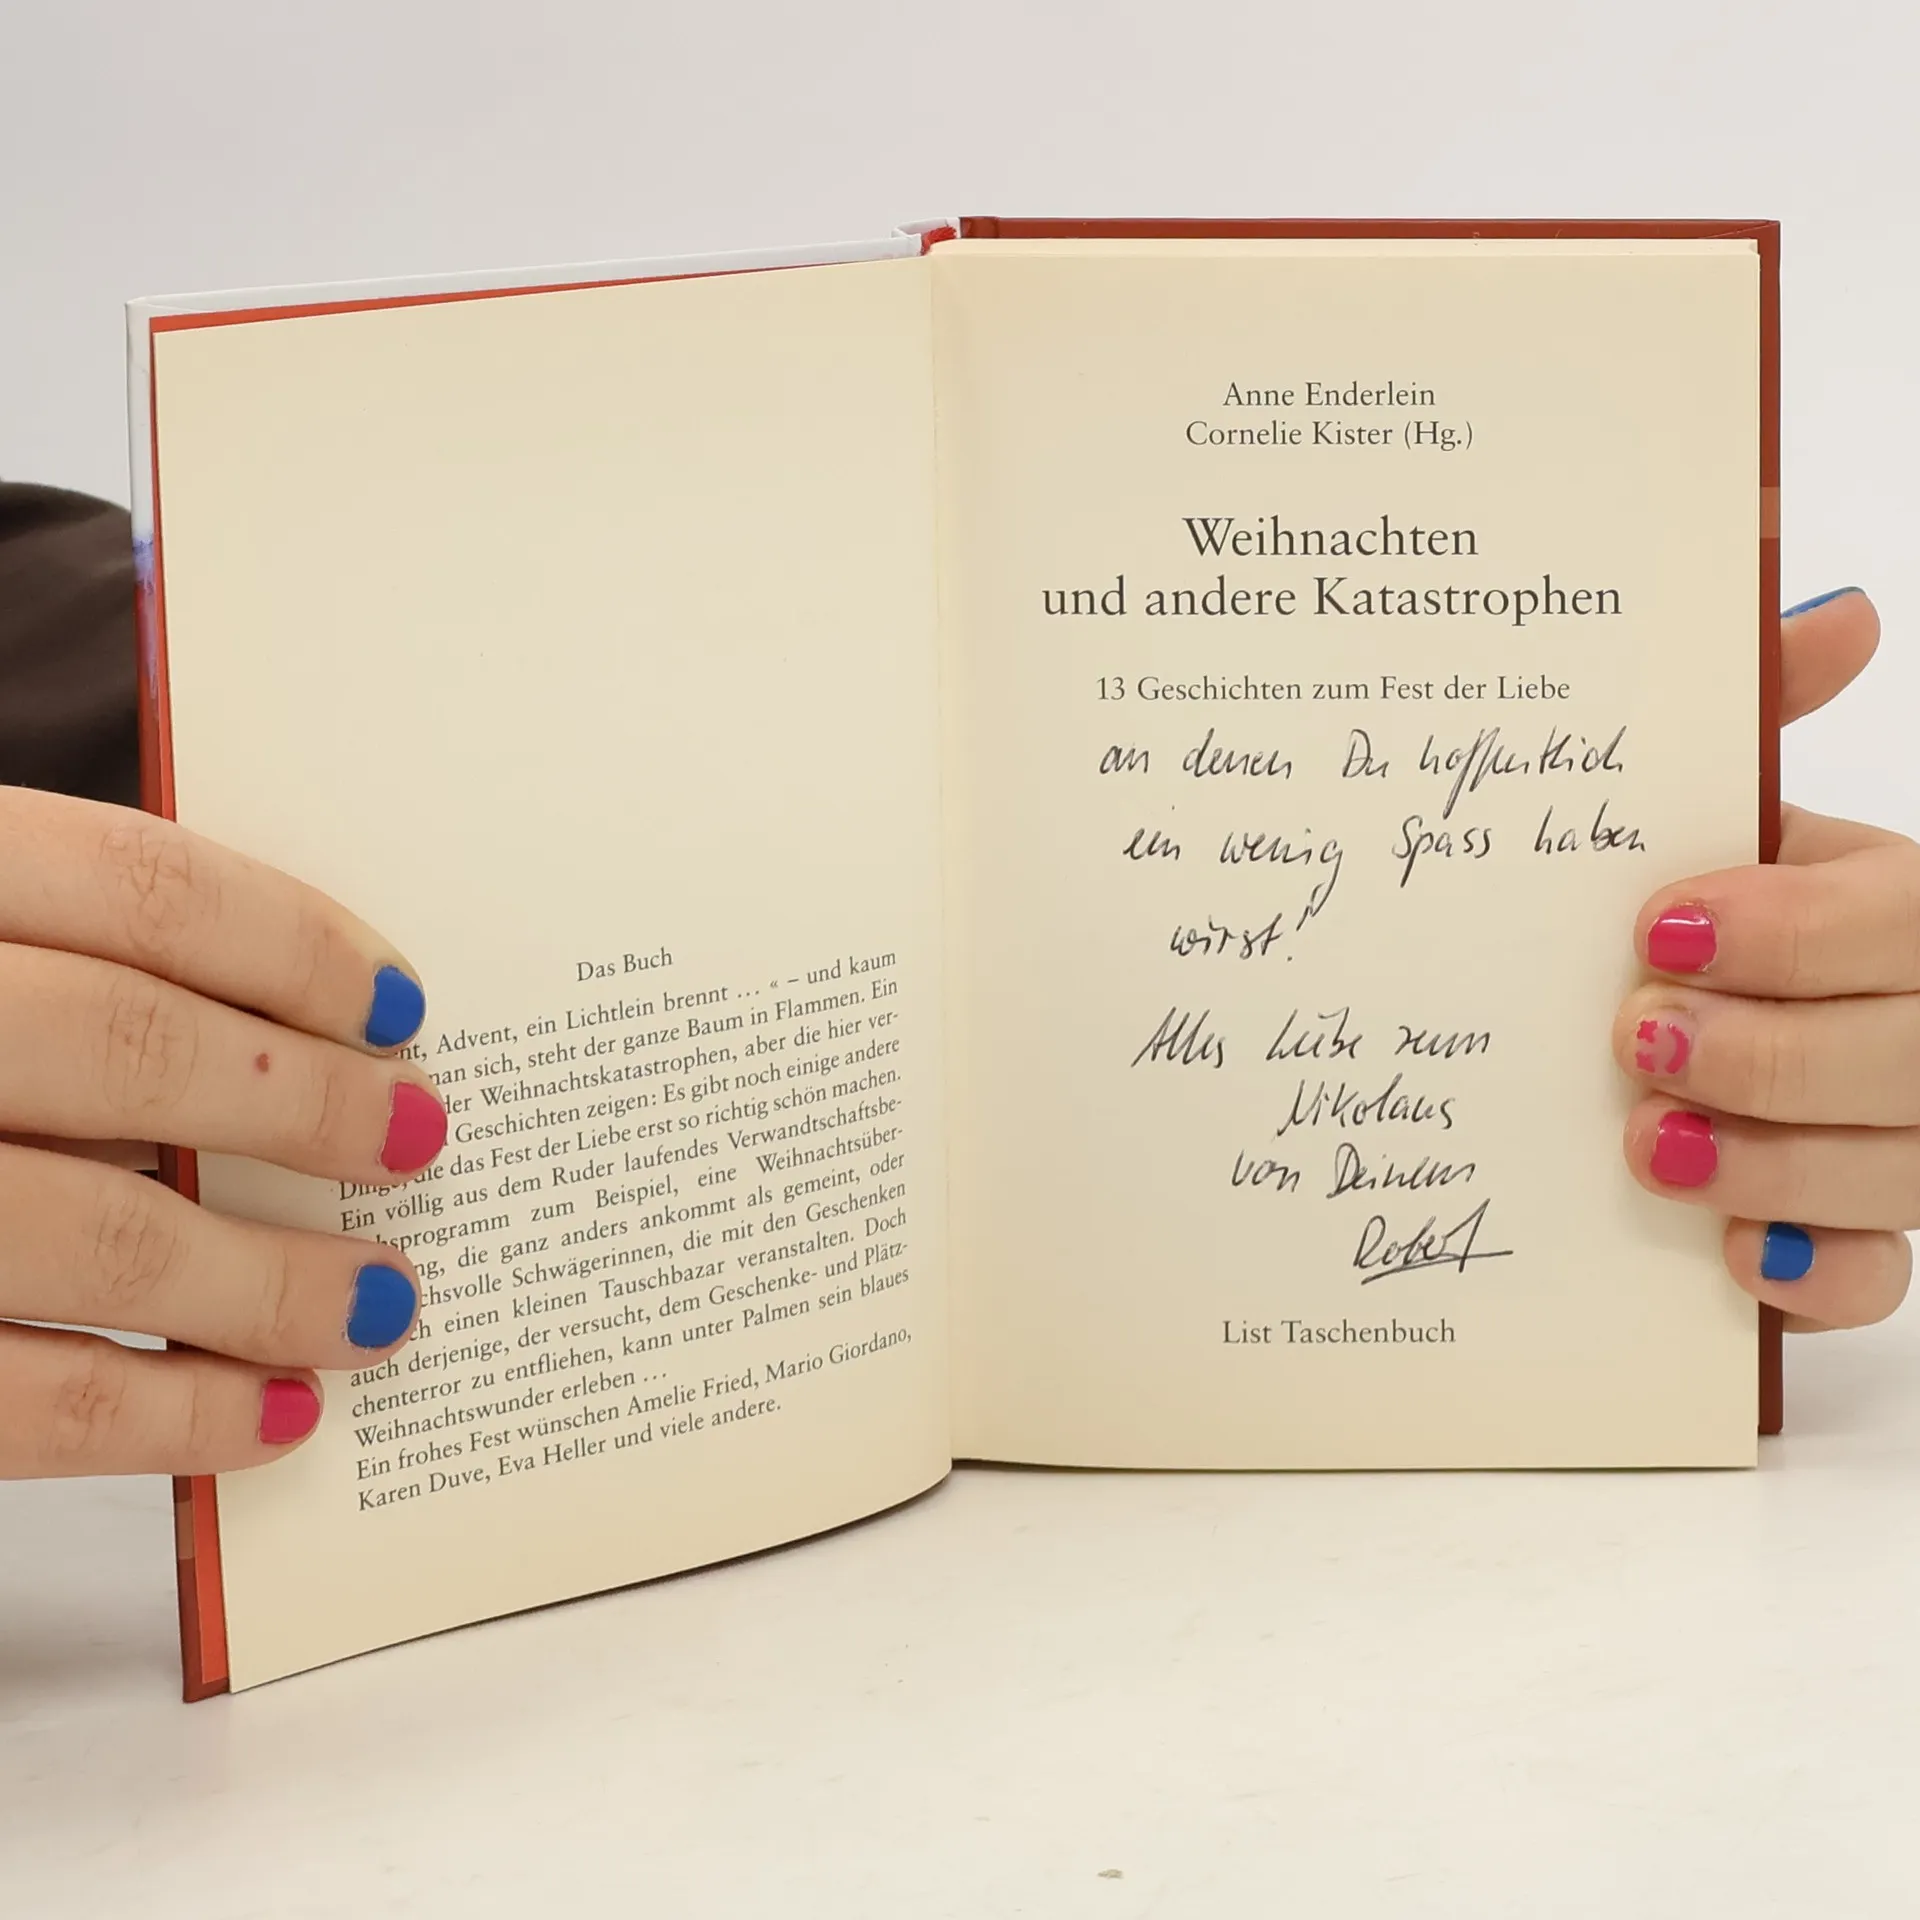 Das Buch
nt, Advent, ein Lichtlein brennt … « – und kaum
man sich, steht der ganze Baum in Flammen. Ein
der Weihnachtskatastrophen, aber die hier ver-
Geschichten zeigen: Es gibt noch einige andere
Dinge, die das Fest der Liebe erst so richtig schön machen.
Ein völlig aus dem Ruder laufendes Verwandtschaftsbe-
hsprogramm zum Beispiel, eine Weihnachtsüber-
ng, die ganz anders ankommt als gemeint, oder
chsvolle Schwägerinnen, die mit den Geschenken
ch einen kleinen Tauschbazar veranstalten. Doch
auch derjenige, der versucht, dem Geschenke- und Plätz-
chenterror zu entfliehen, kann unter Palmen sein blaues
Weihnachtswunder erleben …
Ein frohes Fest wünschen Amelie Fried, Mario Giordano,
Karen Duve, Eva Heller und viele andere.
Anne Enderlein
Cornelie Kister (Hg.)
Weihnachten
und andere Katastrophen
13 Geschichten zum Fest der Liebe
an denen Du hoffentlich
ein wenig Spass haben
wirst!
Alles Liebe zum
Nikolaus
von Deinem
Robert
List Taschenbuch